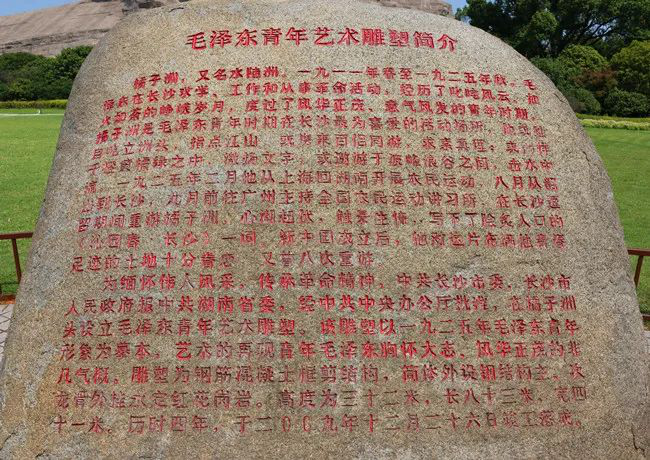 毛泽东青年艺术雕塑简介
橘子洲，又名水陆洲。一九一一年春至一九二五年秋，毛
泽东在长沙求学、工作和从事革命活动，经历了叱咤风云、
火如荼的峥嵘岁月，度过了风华正茂、意气风发的青年时期。
橘子洲是毛泽东青年时期在长沙最为喜爱的活动场所，
自屹立洲头，指点江山，或携来百侣同游，求索真理；
于碧波橘绿之中，激扬文字，或遨游于惊峰浪谷之间，击水中
流。一九二五年二月他从上海回湖南开展农民运动，八月从韶
山到长沙，九月前往广州主持全国农民运动讲习所，在长沙逗
留期间重游橘子洲，心潮起伏，触景生情，写下了脍炙人口的
《沁园春·长沙》一词。新中国成立后，他对这片布满他累累
足迹的土地十分眷恋，又曾八次重游。
为缅怀伟人风采，传承革命精神，中共长沙市委、长沙市
人民政府报中共湖南省委，经中共中央办公厅批准，在橘子洲
头设立毛泽东青年艺术雕塑。该雕塑以一九二五年毛泽东青年
形象为摹本，艺术的再现青年毛泽东胸怀大志、风华正茂的非
凡气概。雕塑为钢筋混凝土框剪结构，简体外设钢结构主、次
龙骨外挂永定红花岗岩。高度为三十二米，长八十三米，宽四
十一米。历时四年，于二00九年十二月二十六日竣工落成。